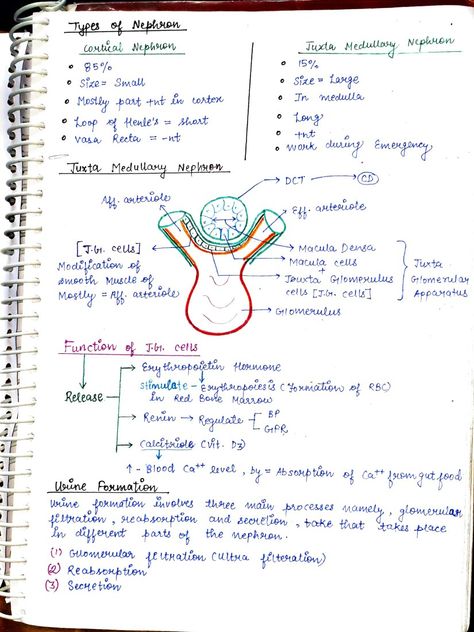 Types of Nephron
Cortical Nephron
85%
Size = Small
Mostly part +nt in cortex
Loop of Henle's = short
Vasa Recta = -nt
Juxta Medullary Nephron
15%
Size = Large
In medulla
Long
+nt
Work during Emergency
Juxta Medullary Nephron
Aff. arteriole
DCT → CD
Eff. arteriole
[J.G. cells]
Modification of
smooth Muscle of
Mostly = Aff. arteriole
Macula Densa
Macula cells
+
Juxta Glomerulus
cells [J.G. cells]
Glomerulus
Juxta
Glomerular
Apparatus
Function of J.G. cells
Release
→ Erythropoietin Hormone
stimulate - Erythropoiesis (Formation of RBC)
in Red Bone Marrow
→ Renin → Regulate
BP
GFR
→ Calcitriole (Vit. D3)
↑ - Blood Ca++ level, by = Absorption of Ca++ from gut food
Urine Formation
Urine formation involves three main processes namely, glomerular
filtration, reabsorption and secretion, take that takes place
in different parts of the nephron.
(1) Glomerular filtration (Ultra filteration)
(2) Reabsorption
(3) Secretion